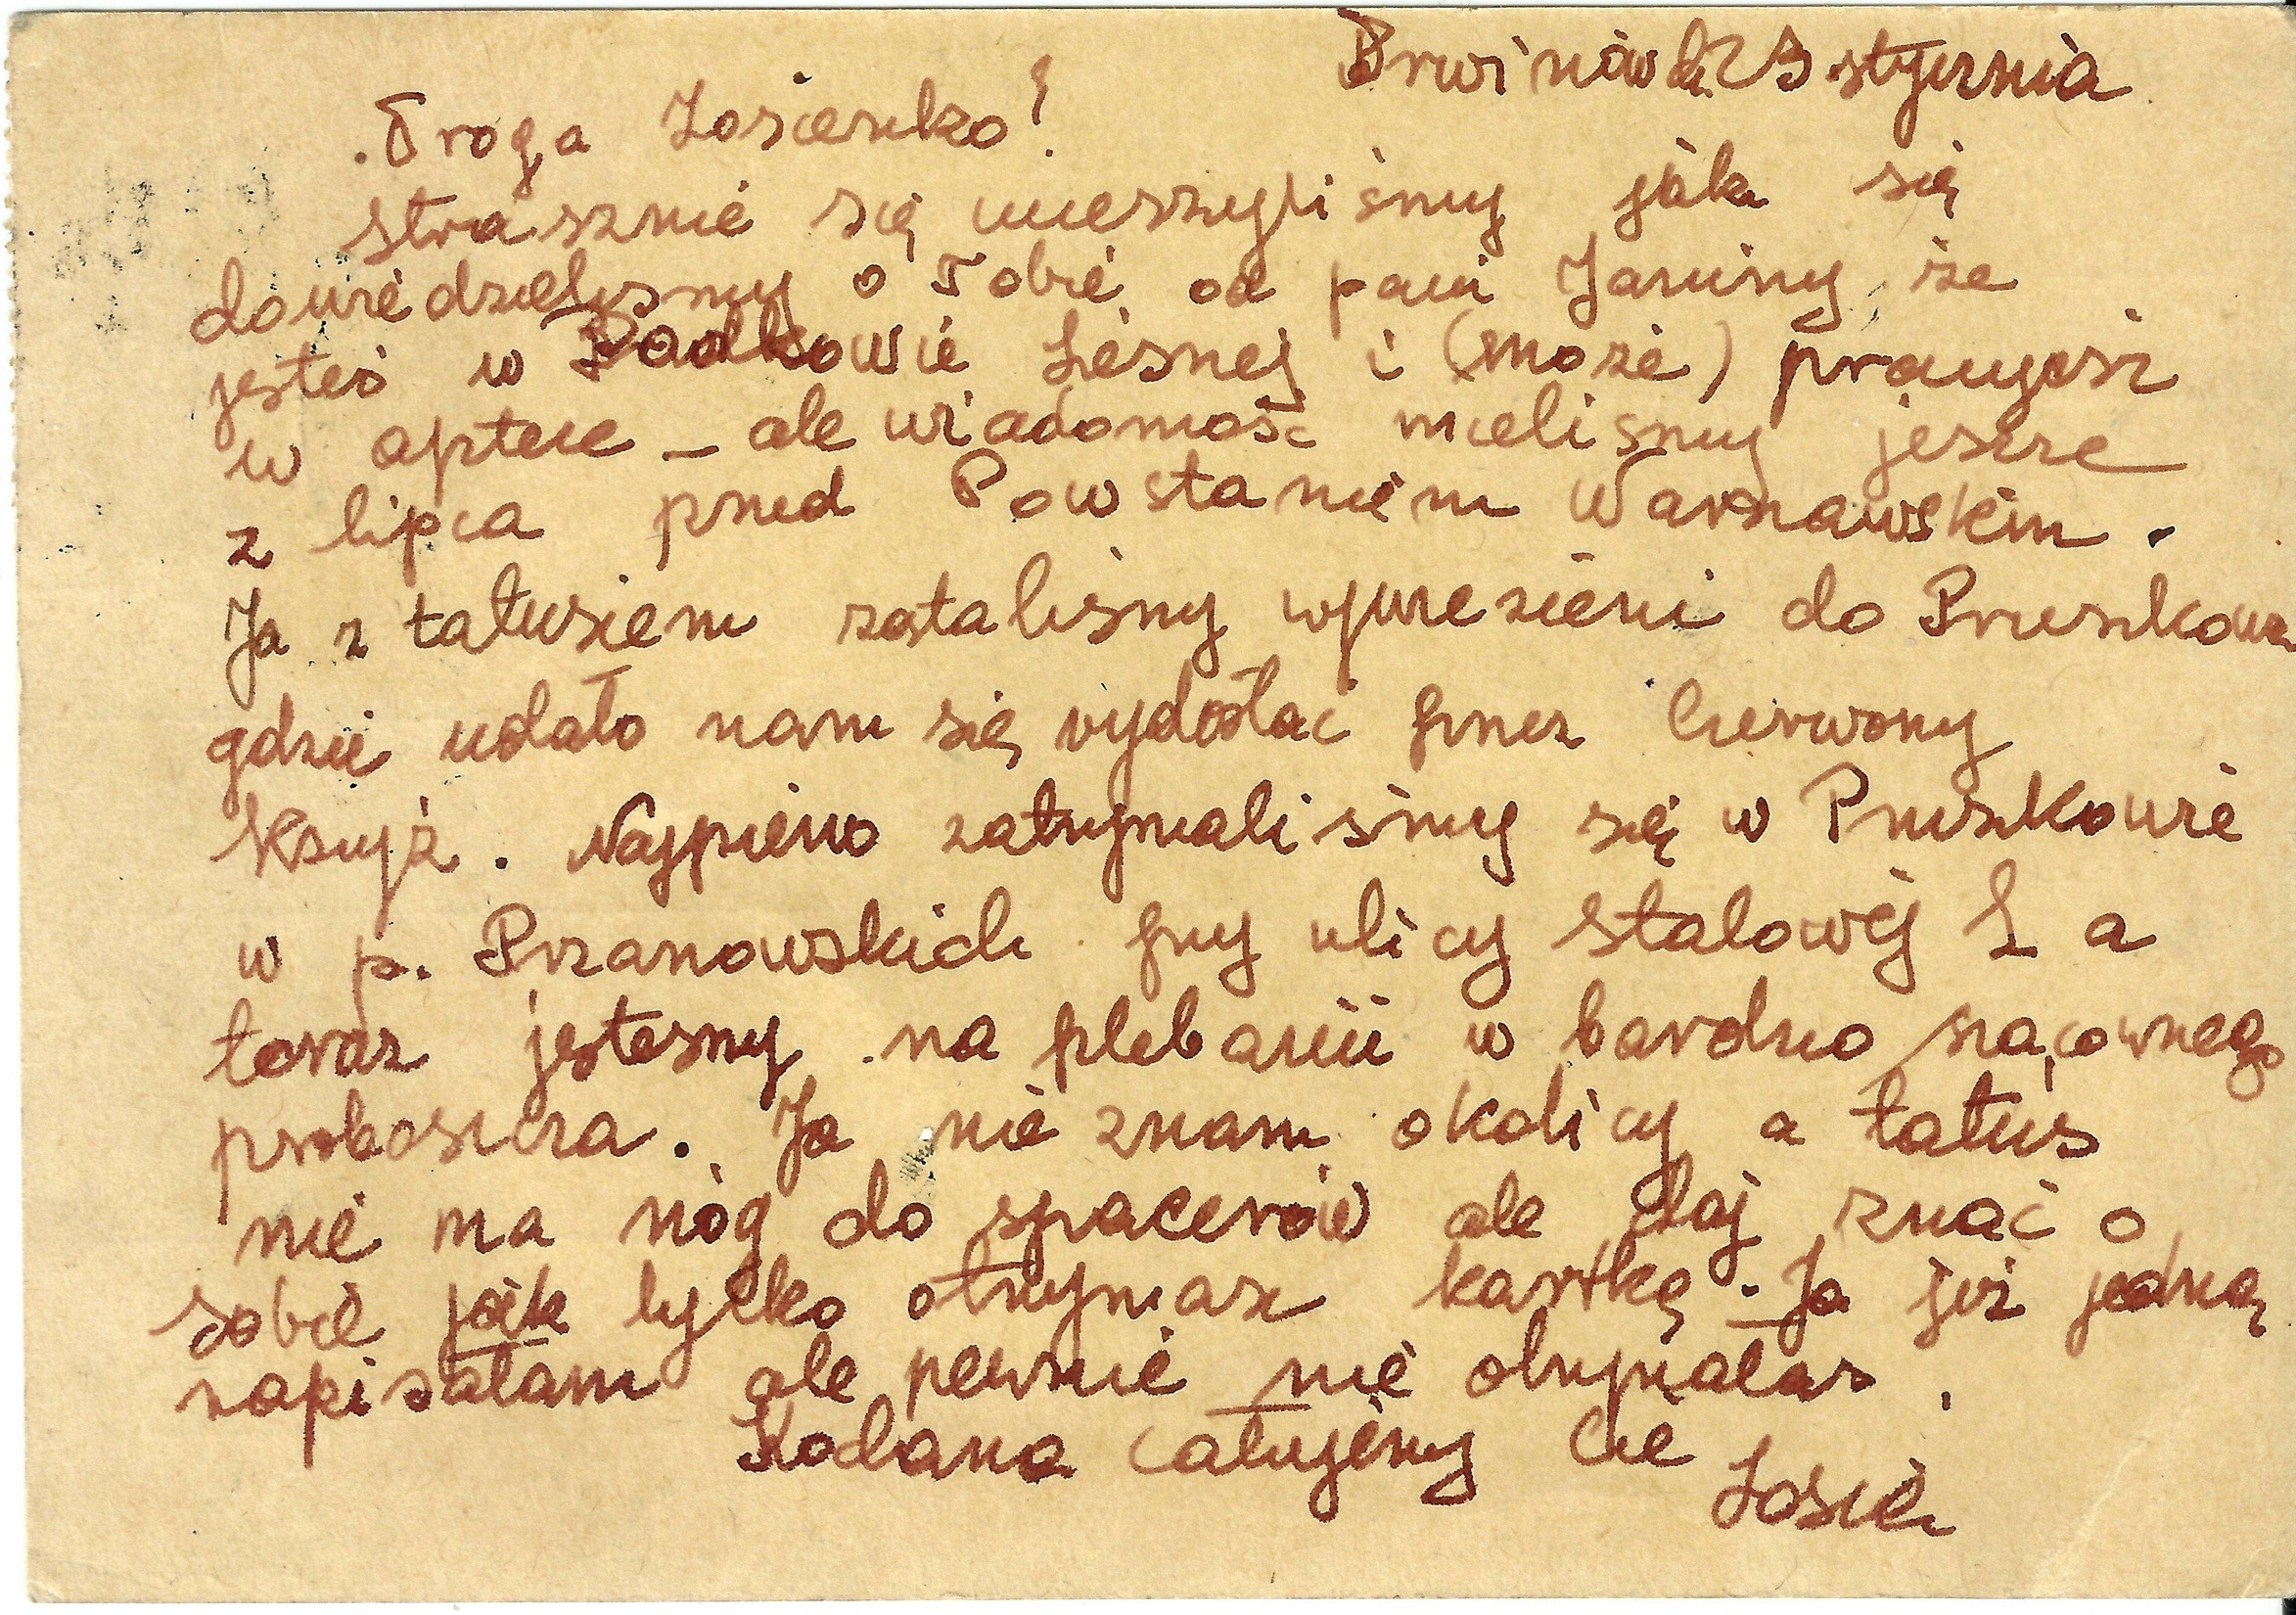 Brwinów d. 23 stycznia
Droga Zosieńko!
Strasznie się ucieszyliśmy jak się
dowiedzieliśmy o Tobie od pani Janiny, że
jesteś w Podkowie Leśnej i (może) pracujesz
w aptece – ale wiadomość mieliśmy jeszcze
z lipca przed Powstaniem Warszawskim.
Ja z tatusiem zostaliśmy wywiezieni do Pruszkowa
gdzie udało nam się wydostać przez Czerwony
Krzyż. Najpierw zatrzymaliśmy się w Pruszkowie
w p. Przanowskich przy ulicy Stalowej a
teraz jesteśmy na plebanii w bardzo zacownego
proboszcza. Ja nie znam okolicy a tatuś
nie ma nóg do spacerów ale daj znać o
sobie jak tylko otrzymasz kartkę. – Ja już jedną
napisałam ale pewnie nie otrzymałaś.
Kochana całujemy Cię